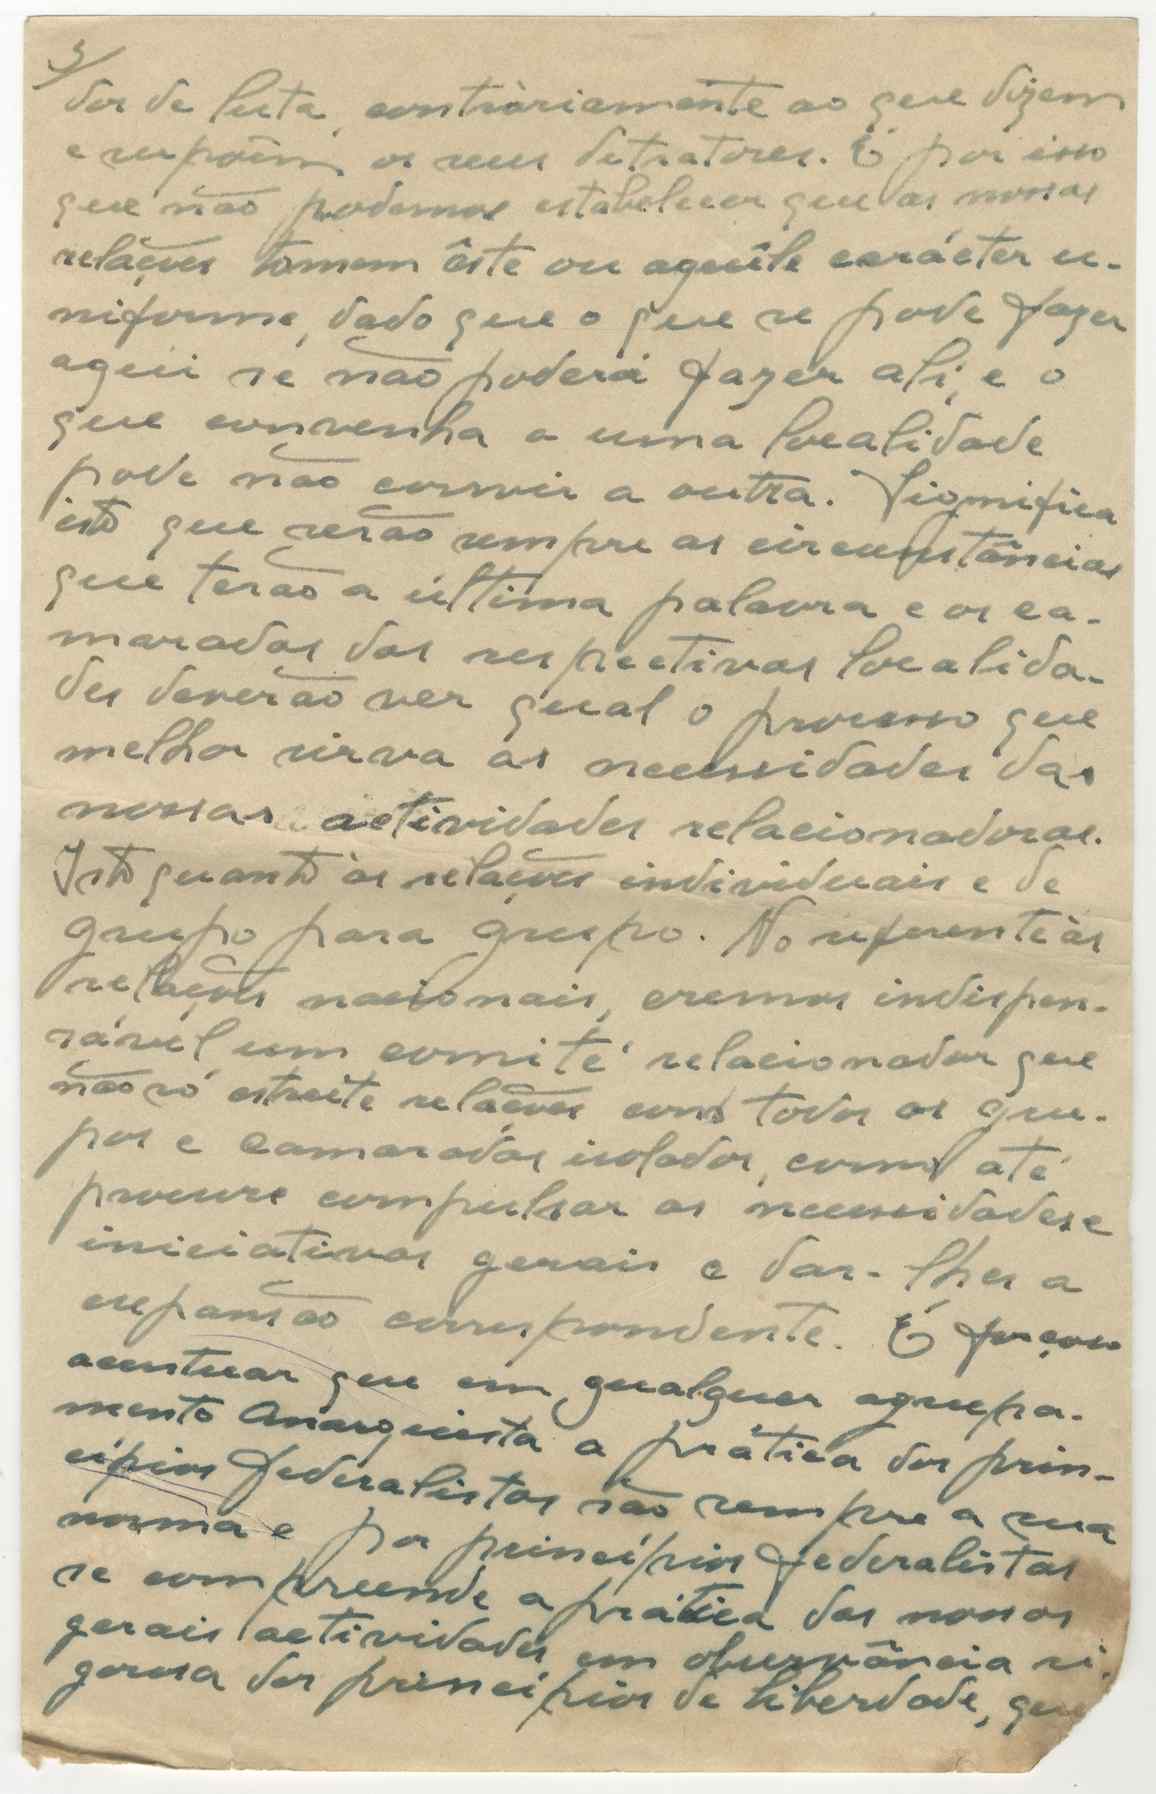 3/
dos de luta, contràriamente ao que dizem
e supõem os seus detratores. É por isso
que não podemos estabelecer que as nossas
relações tomem êste ou aquêle carácter u-
niforme, dado que o que se pode fazer
aqui se não poderá fazer ali, e o
que convenha a uma localidade
pode não convir a outra. Significa
isto que serão sempre as circunstâncias
que terão a última palavra e os ca-
maradas das respectivas localida-
des deverão ver qual o processo que
melhor sirva as necessidades das
nossas actividades relacionadoras.
Isto quanto às relações individuais e de
grupo para grupo. No referente às
relações nacionais, cremos indispen-
sável um comité relacionador que
não só estreite relações com todos os gru-
pos e camaradas isolados, como até
procure compulsar as necessidades e
iniciativas gerais e dar-lhes a
expansão correspondente. É forçoso
acentuar que em qualquer agrupa-
mento Anarquista a prática dos prin-
cípios federalistas são sempre a sua
norma e por princípios federalistas
se compreende a prática das nossas
gerais actividades em observância ri-
gorosa dos princípios de liberdade, que